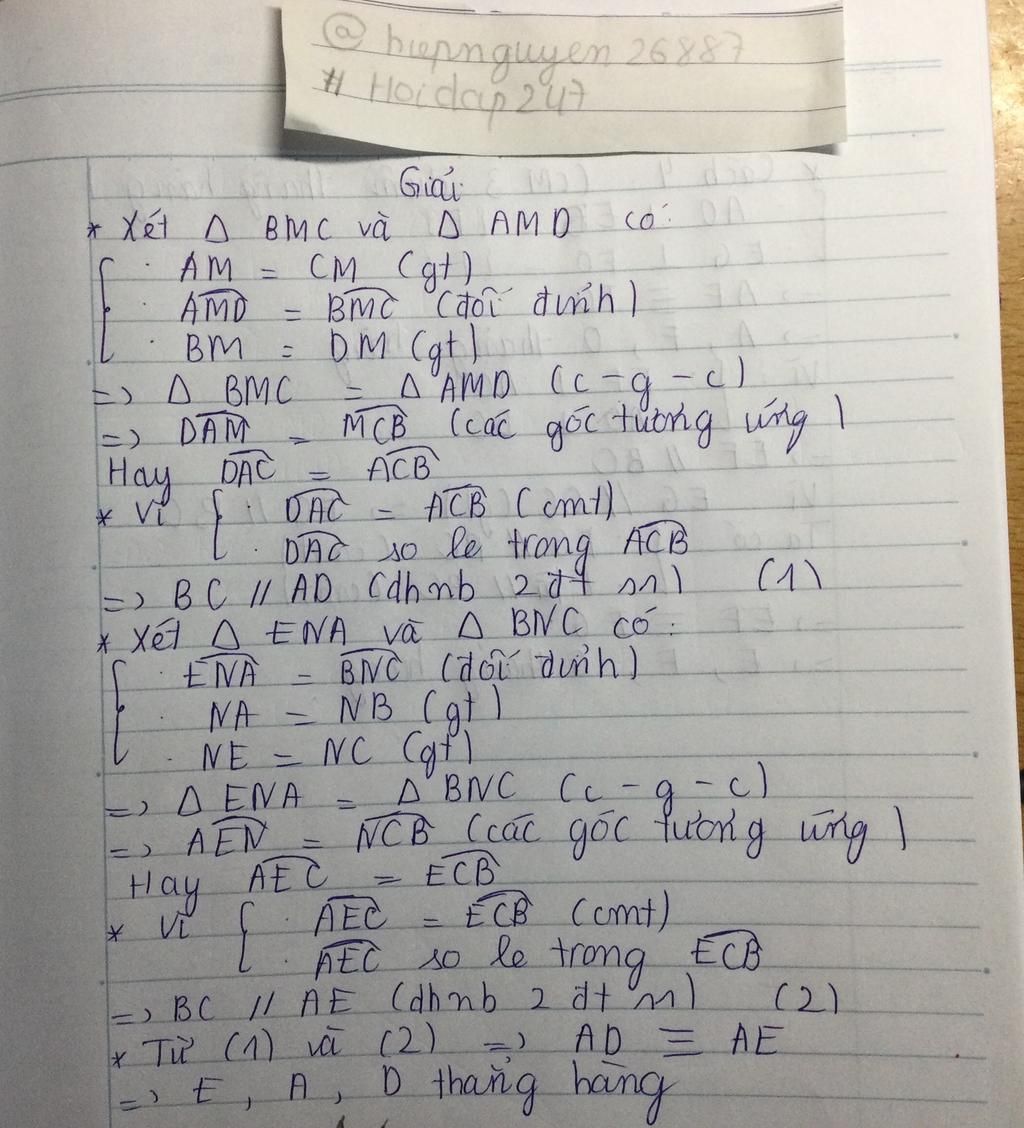 @ hiepnguyen26887
# Hoidap247
Giải:
* Xét Δ BMC và Δ AMD có:
· AM = CM (gt)
· AMD = BMC (đối đỉnh)
· BM = DM (gt)
=> Δ BMC = Δ AMD (c-g-c)
=> DAM = MCB (các góc tương ứng)
Hay DAC = ACB
* Vì { · DAC = ACB (cmt)
· DAC so le trong ACB
=> BC // AD (dhnb 2 đt //) (1)
* Xét Δ ENA và Δ BNC có:
· ENA = BNC (đối đỉnh)
· NA = NB (gt)
· NE = NC (gt)
=> Δ ENA = Δ BNC (c-g-c)
=> AEN = NCB (các góc tương ứng)
Hay AEC = ECB
* Vì { · AEC = ECB (cmt)
· AEC so le trong ECB
=> BC // AE (dhnb 2 đt //) (2)
* Từ (1) và (2) => AD ≡ AE
=> E, A, D thẳng hàng